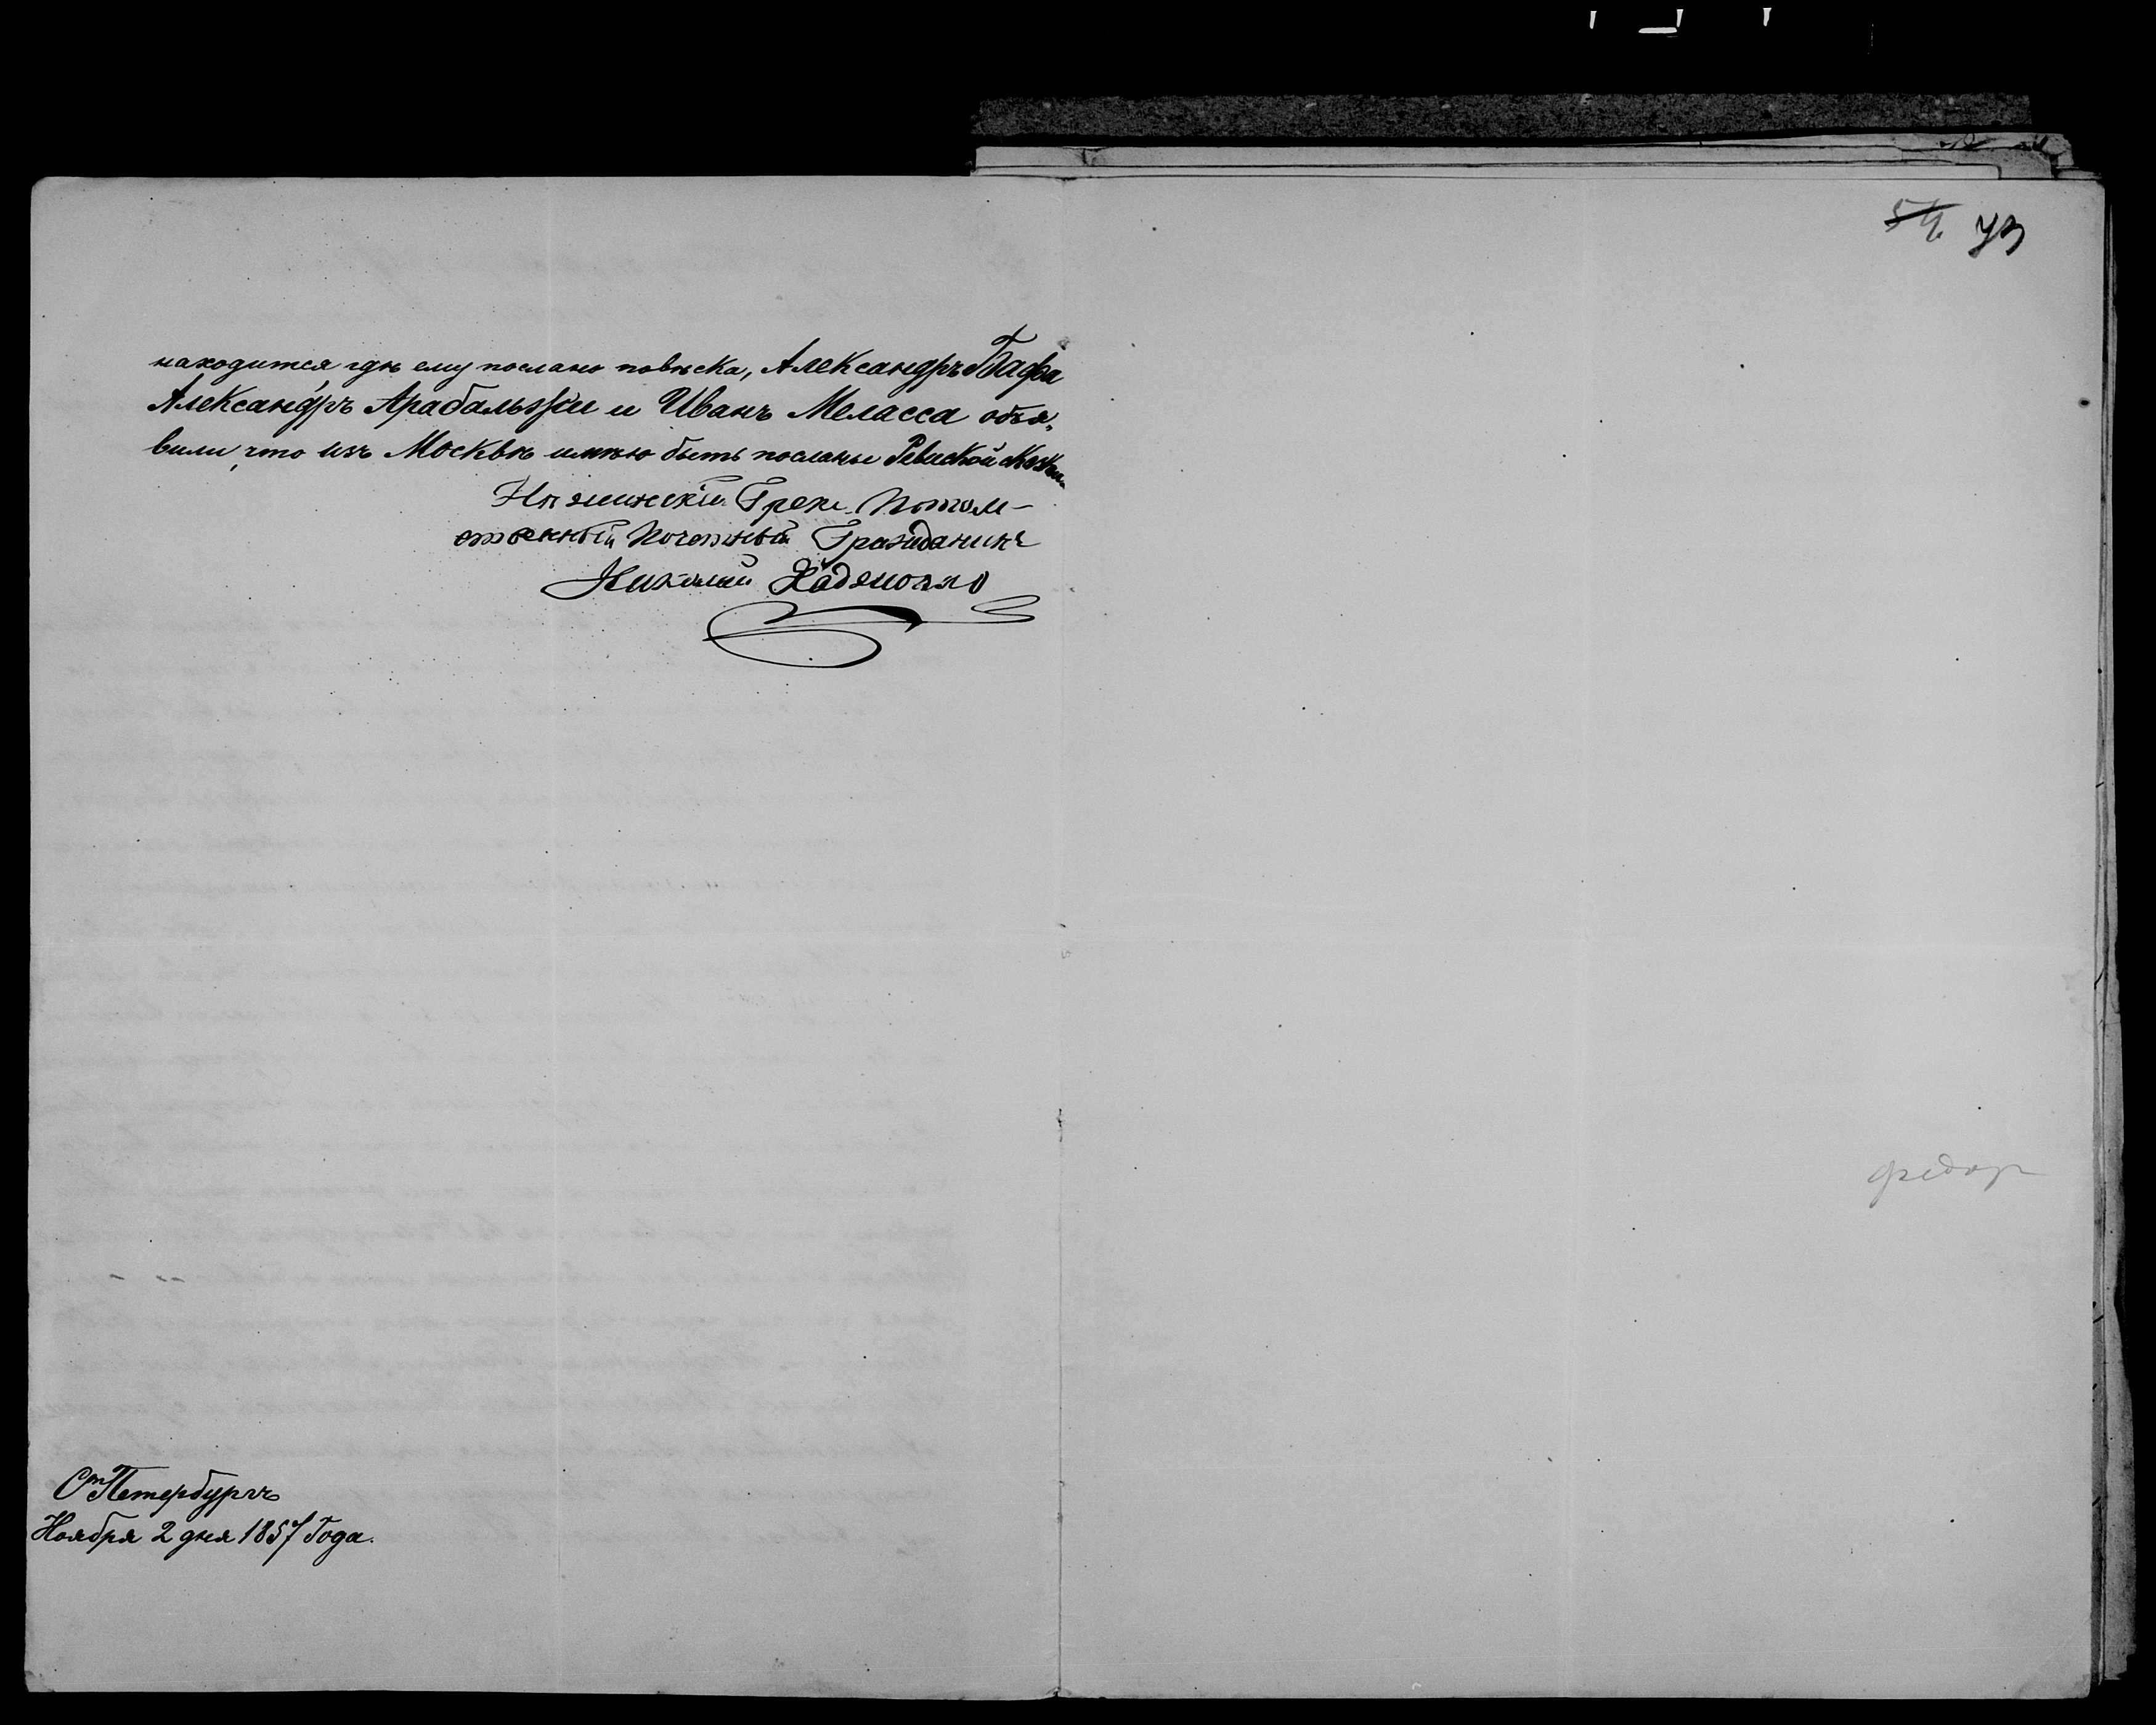 находится гдѣ ему послано повѣска, Александръ Бафа
Александръ Арабальзіи и Иванъ Меласса объя„
вили, что изъ Москвѣ имѣю быть посланы Ревиской
Нѣжинскій Грекъ Потом-
ственный почетный Гражданинъ
Николай
Ст Петербургъ
Ноября 2 дня 1857 Года.
54. 73
федор